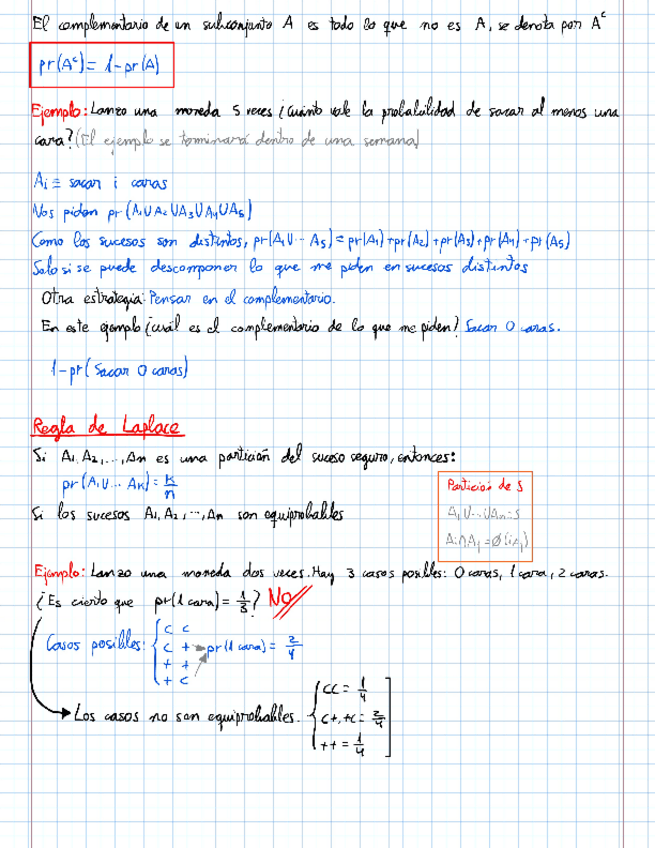 El complementario de un subconjunto A es todo lo que no es A, se denota por Aᶜ
pr(Aᶜ) = 1-pr(A)
Ejemplo: Lanzo una moneda 5 veces ¿Cuánto vale la probabilidad de sacar al menos una
cara? (El ejemplo se terminará dentro de una semana)
Aᵢ ≡ sacar i caras
Nos piden pr(A₁∪A₂∪A₃∪A₄∪A₅)
Como los sucesos son distintos, pr(A₁∪··· A₅) = pr(A₁)+pr(A₂)+pr(A₃)+pr(A₄)+pr(A₅)
Solo si se puede descomponer lo que me piden en sucesos distintos
Otra estrategia: Pensar en el complementario.
En este ejemplo ¿cuál es el complementario de lo que me piden? Sacar 0 caras.
1-pr(Sacar 0 caras)
Regla de Laplace
Si A₁, A₂, ..., An es una partición del suceso seguro, entonces:
pr(A₁∪... Aₖ) = k/n
Si los sucesos A₁, A₂, ..., An son equiprobables
Partición de S
A₁∪...∪An=S
Aᵢ∩Aⱼ=Ø(i≠j)
Ejemplo: Lanzo una moneda dos veces. Hay 3 casos posibles: 0 caras, 1 cara, 2 caras.
¿Es cierto que pr(1 cara) = 1/3? NO
Casos posibles:
C C
C +
+ +
+ C
pr(1 cara) = 2/4
Los casos no son equiprobables.
CC = 1/4
C+, +C = 2/4
++ = 1/4